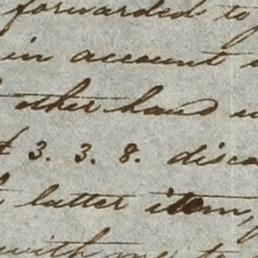 forwarded to
in account
other hand
3. 3. 8. disco
latter item,
with me to